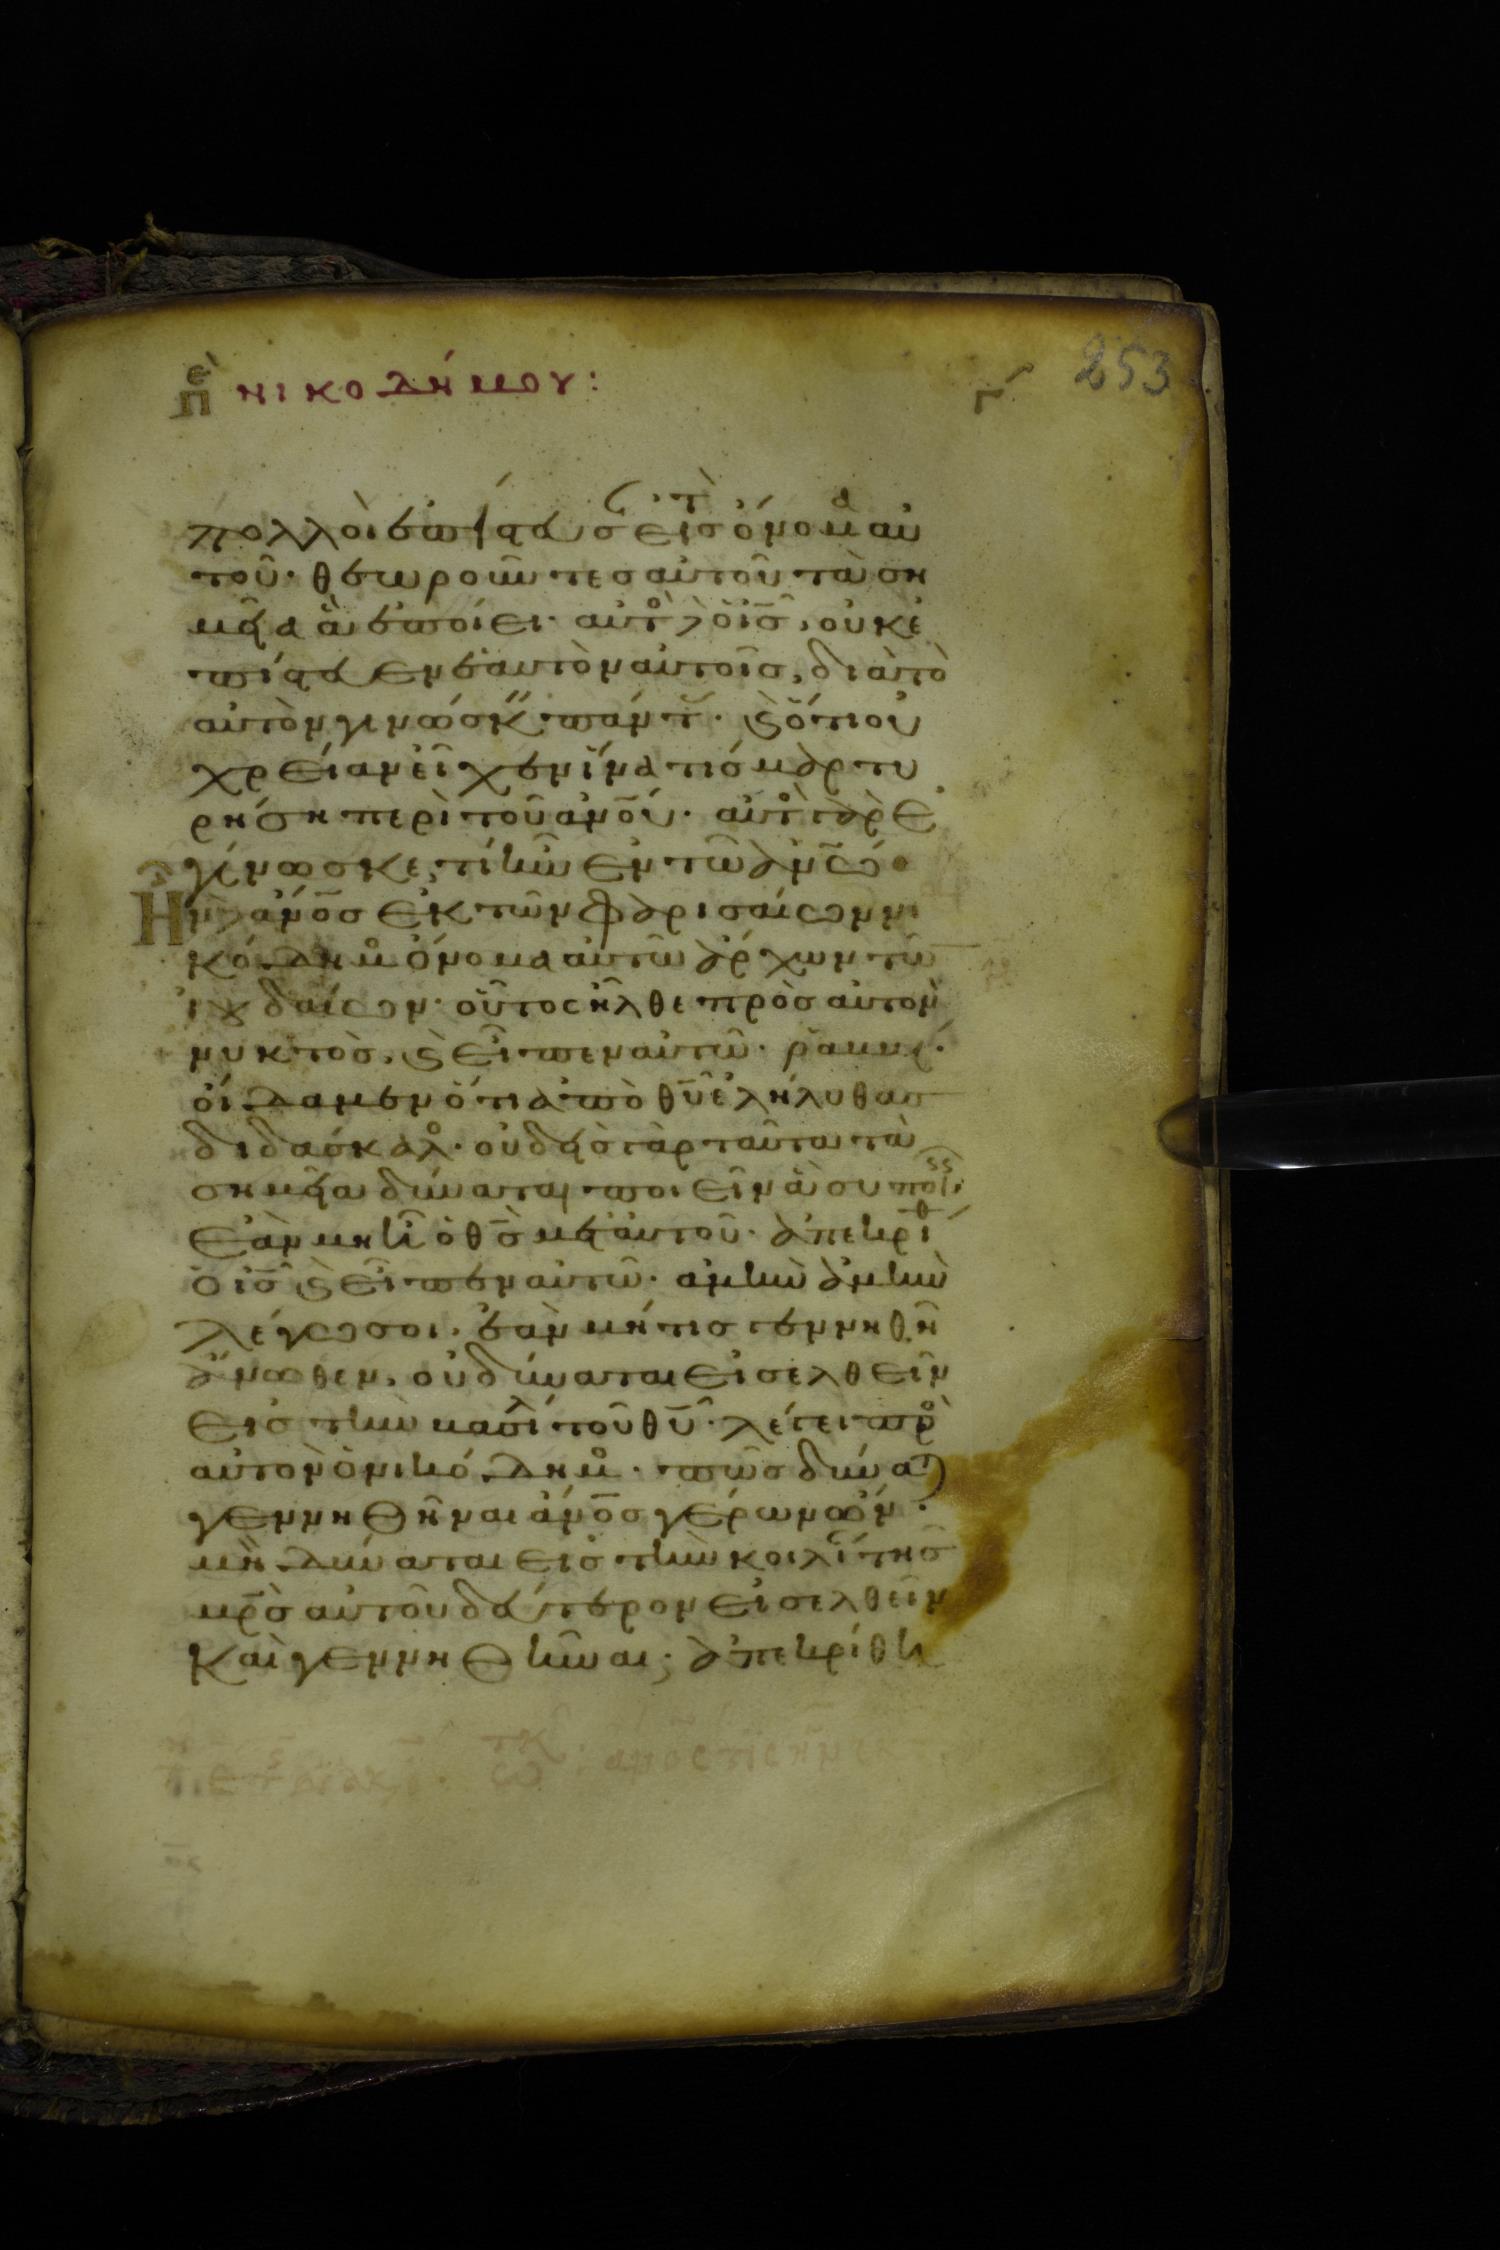 ἐπὶ νικοδήμου: γ´ 253
πολλοὶ ἐπίστευσ εἰσ τὸ ὄνομα αὐ
τοῦ· θεωροῦντεσ αὐτοῦ τὰ ση
μεῖα ἃ ἐποίει· αὐτὸς δὲ ὁ ισ, οὐκ ἐ
πίστευεν ἑαυτὸν αὐτοῖσ, διὰ τὸ
αὐτὸν γινώσκειν πάντας· καὶ ὅτι οὐ
χρείαν εἶχεν ἵνα τισ μαρτυ
ρήση περὶ τοῦ ανου· αὐτὸς γὰρ ἐ
γίνωσκε, τί ἦν ἐν τῶ ανω
Ἦν δὲ ανοσ ἐκ τῶν φαρισαίων νι
κόδημος ὄνομα αὐτῶ ἄρχων τῶν
ἰουδαίων· οὗτος ἦλθε πρὸσ αὐτὸν
νυκτὸσ, καὶ εἶπεν αὐτῶ· ῥαββί·
οἴδαμεν ὅτι ἀπὸ θυ ἐλήλυθασ
διδάσκαλος· οὐδεὶς γὰρ ταῦτα τὰ
σημεῖα δύναται ποιεῖν ἃ σὺ ποιεῖς,
ἐὰν μὴ ἦ ὁ θσ μετ αὐτοῦ· ἀπεκρίθη
ὁ ισ καὶ εἶπεν αὐτῶ· ἀμὴν ἀμὴν
λέγω σοι, ἐὰν μή τισ γεννηθῆ
ἄνωθεν, οὐ δύναται εἰσελθεῖν
εἰσ τὴν βασιλείαν τοῦ θυ· λέγει πρὸς
αὐτὸν ὁ νικόδημος· πῶσ δύναται
γεννηθῆναι ανοσ γέρων ὤν·
μὴ δύναται εἰσ τὴν κοιλίαν τησ
μρσ αὐτοῦ δεύτερον εἰσελθεῖν
καὶ γεννηθῆναι; ἀπεκρίθη